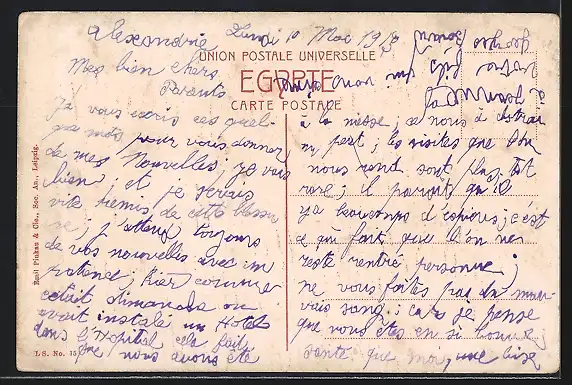 Alexandrie Lundi 10 Mai 1915
UNION POSTALE UNIVERSELLE
EGYPTE
CARTE POSTALE
Mes bien chers
Parents
Je vous écris ces quel
que mots pour vous donner
de mes Nouvelles; je vais
bien; et je serais
vite remis de cette blessu
re; j'attend toujours
de vos nouvelles avec im
patience; hier comme
cétait dimanche on
avait installé un Hotel
dans l'Hopital cela fait
que nous avons été
à la messe; se nous à distrai
un peut; les visites que l'on
nous rend sont plus tôt
rare; il parait qu'il
y a beaucoups d'espions; c'est
ce qui fait que l'on ne
reste rentré personne;
ne vous faites pas de mau
vais sang; car je pense
que vous êtes en si bonne
santé que moi, une bise
Emil Pinkau & Cie., Soc. An., Leipzig.
I. S. No. 15